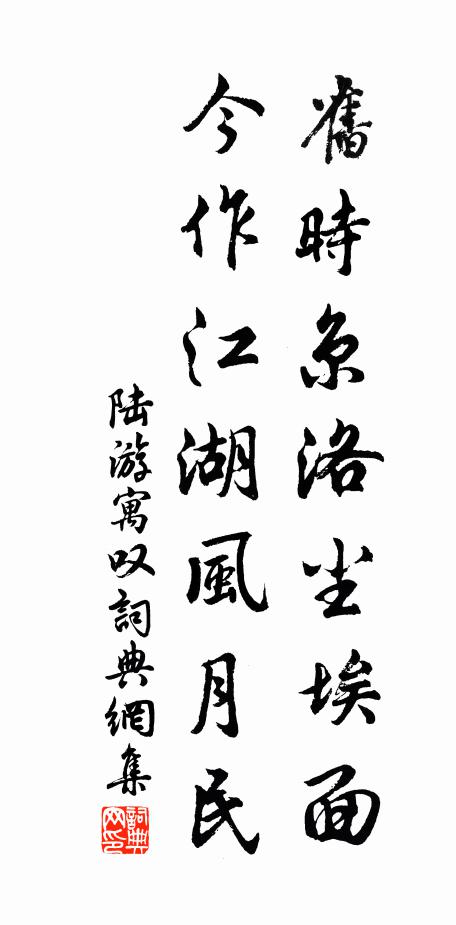 舊時京洛尘埃面
今作江湖風月民
陆游寓叹詞典網集
詞典网印